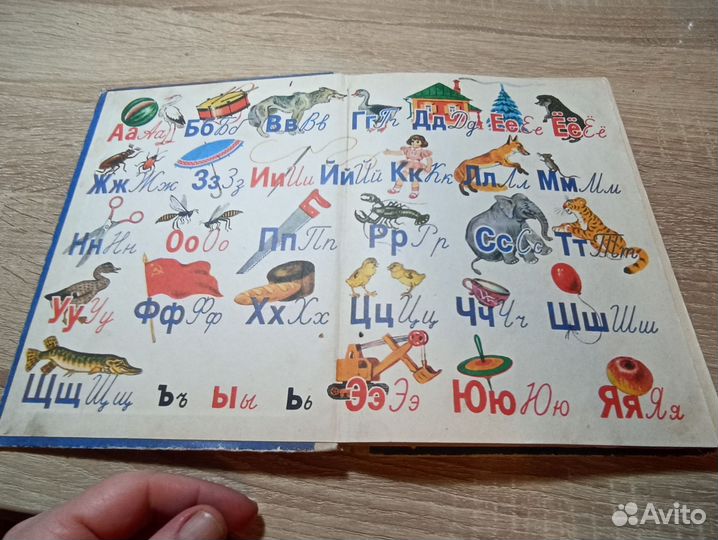 Аа Аа Бб Бб Вв Вв Гг Гг Дд Дд Ее Ее Ёё Ёё
Жж Жж Зз Зз Ии Ии Йй Йй Кк Кк Лл Лл Мм Мм
Нн Нн Оо Оо Пп Пп Рр Рр Сс Сс Тт Тт
Уу Уу Фф Фф Хх Хх Цц Цц Чч Чч Шш Шш
Щщ Щщ Ъъ Ыы Ьь Ээ Ээ Юю Юю Яя Яя
Avito